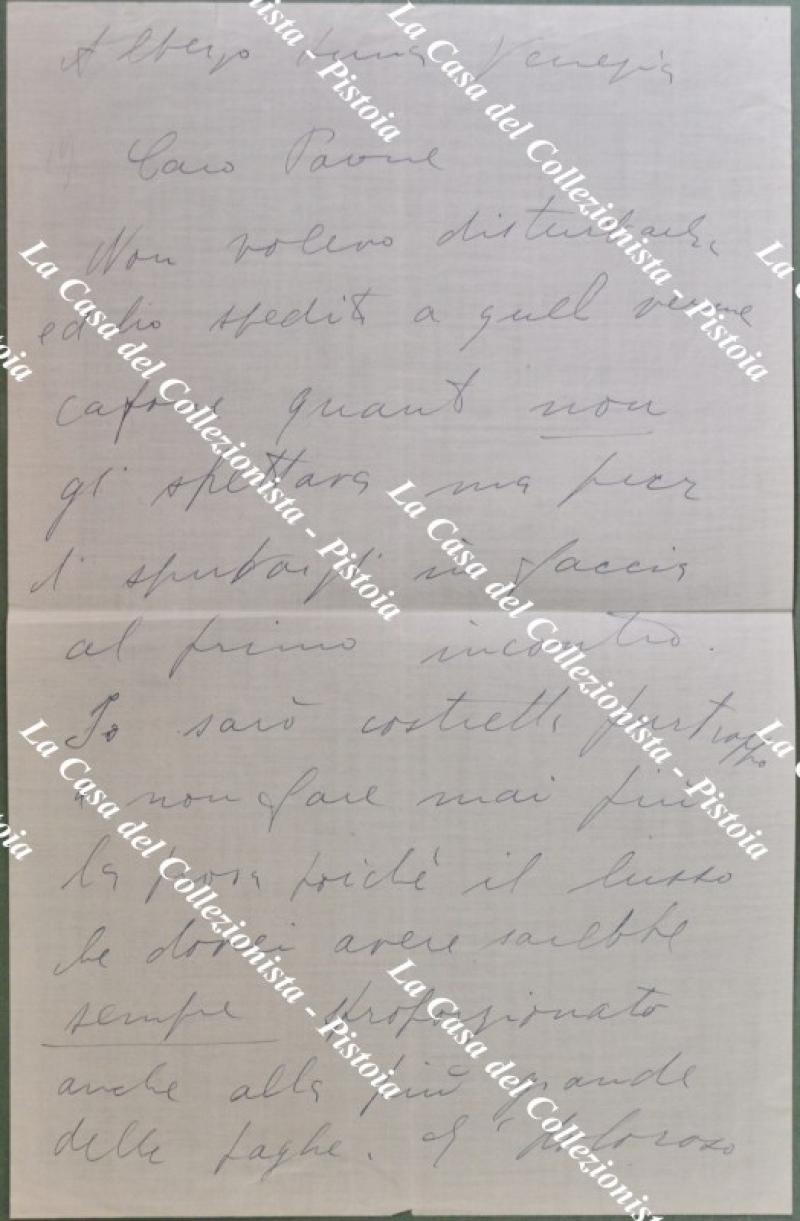 Albergo Luna Venezia
Caro Pavone
Non volevo disturbarla
ed ho spedito a quel verme
cafone quanto non
gli spettava ma per
di sputargli in faccia
al primo incontro.
Io sarò costretta purtroppo
a non fare mai più
la prosa poiché il lusso
che dovrei avere sarebbe
sempre sproporzionato
anche alla più grande
delle paghe. E' doloroso
La Casa del Collezionista - Pistoia
La Casa del Collezionista - Pistoia
La Casa del Collezionista - Pistoia
La Casa del Collezionista - Pistoia
La Casa del Collezionista - Pistoia